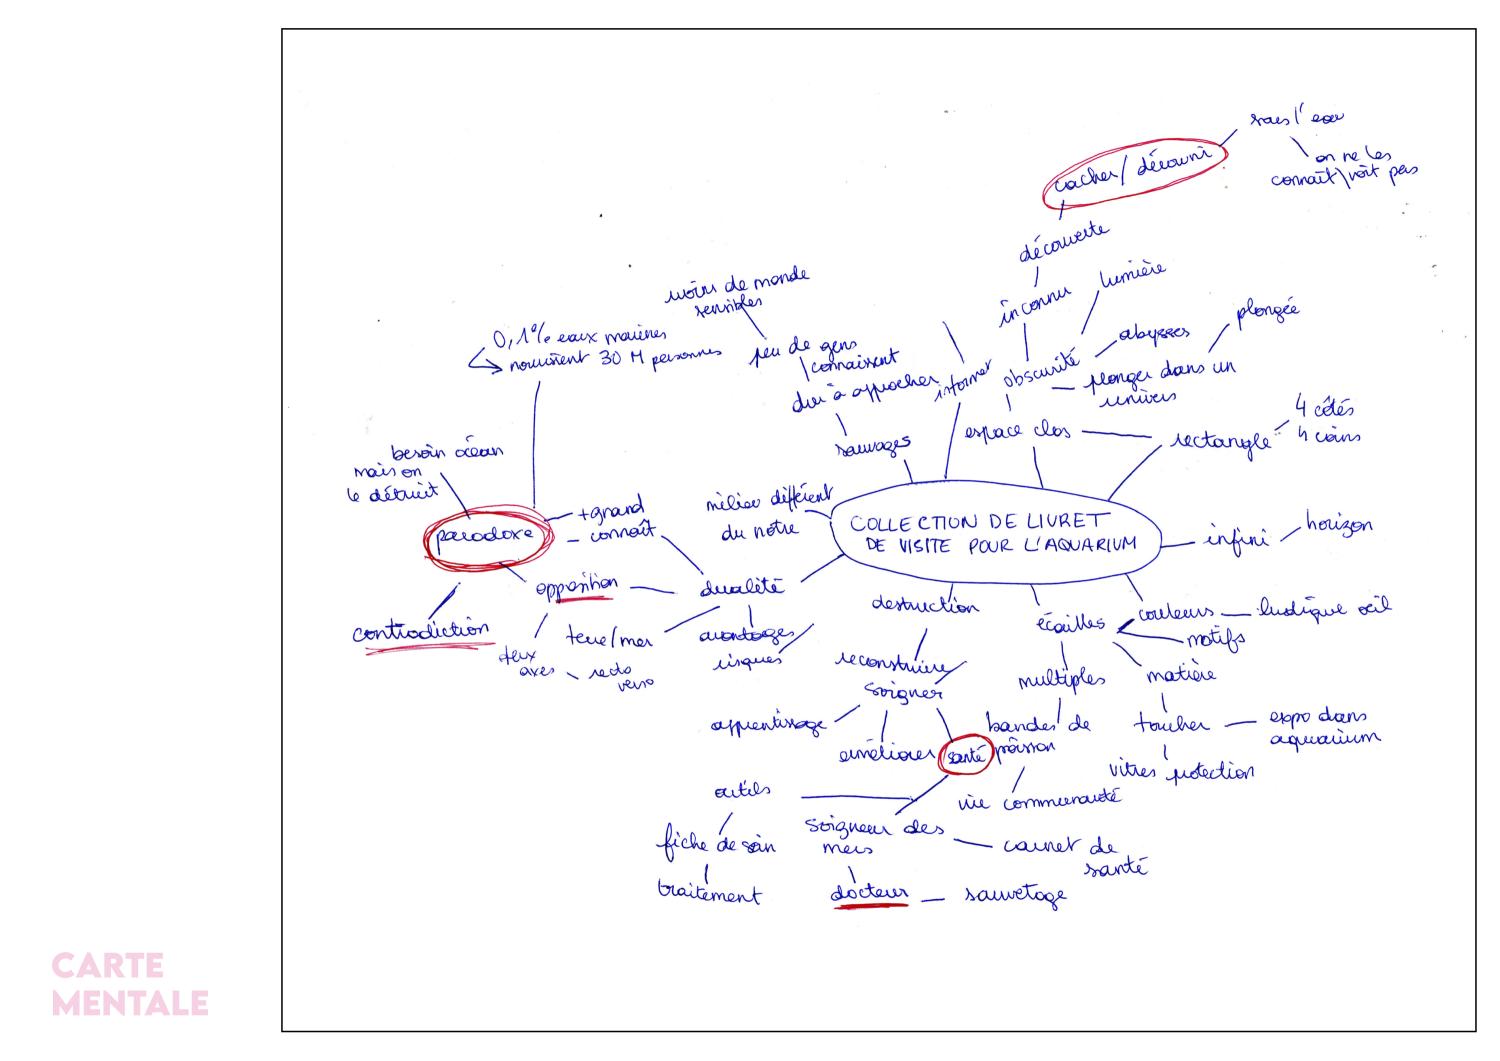 sous l'eau
on ne les
connaît\voit pas
cacher/découvrir
découverte
lumière
inconnu
moins de monde
sensibles
plongée
0,1% eaux marines
nourrissent 30 M personnes
abysses
peu de gens
connaissent
obscurité
informer
plonger dans un
univers
dur à approcher
4 côtés
4 coins
espace clos
rectangle
sauvages
besoin océan
mais on
le détruit
milieu différent
du notre
+ grand
- connaît
paradoxe
COLLECTION DE LIVRET
DE VISITE POUR L'AQUARIUM
infini
horizon
opposition
dualité
destruction
couleurs
ludique oeil
écailles
motifs
contradiction
terre/mer
avantages
risques
deux
axes
recto
verso
reconstruire
soigner
multiples
matière
apprentissage
améliorer
santé
bandes de
poisson
toucher
expo dans
aquarium
vitres protection
outils
vie communauté
soigneur des
mers
fiche de soin
carnet de
santé
traitement
docteur
sauvetage
CARTE
MENTALE